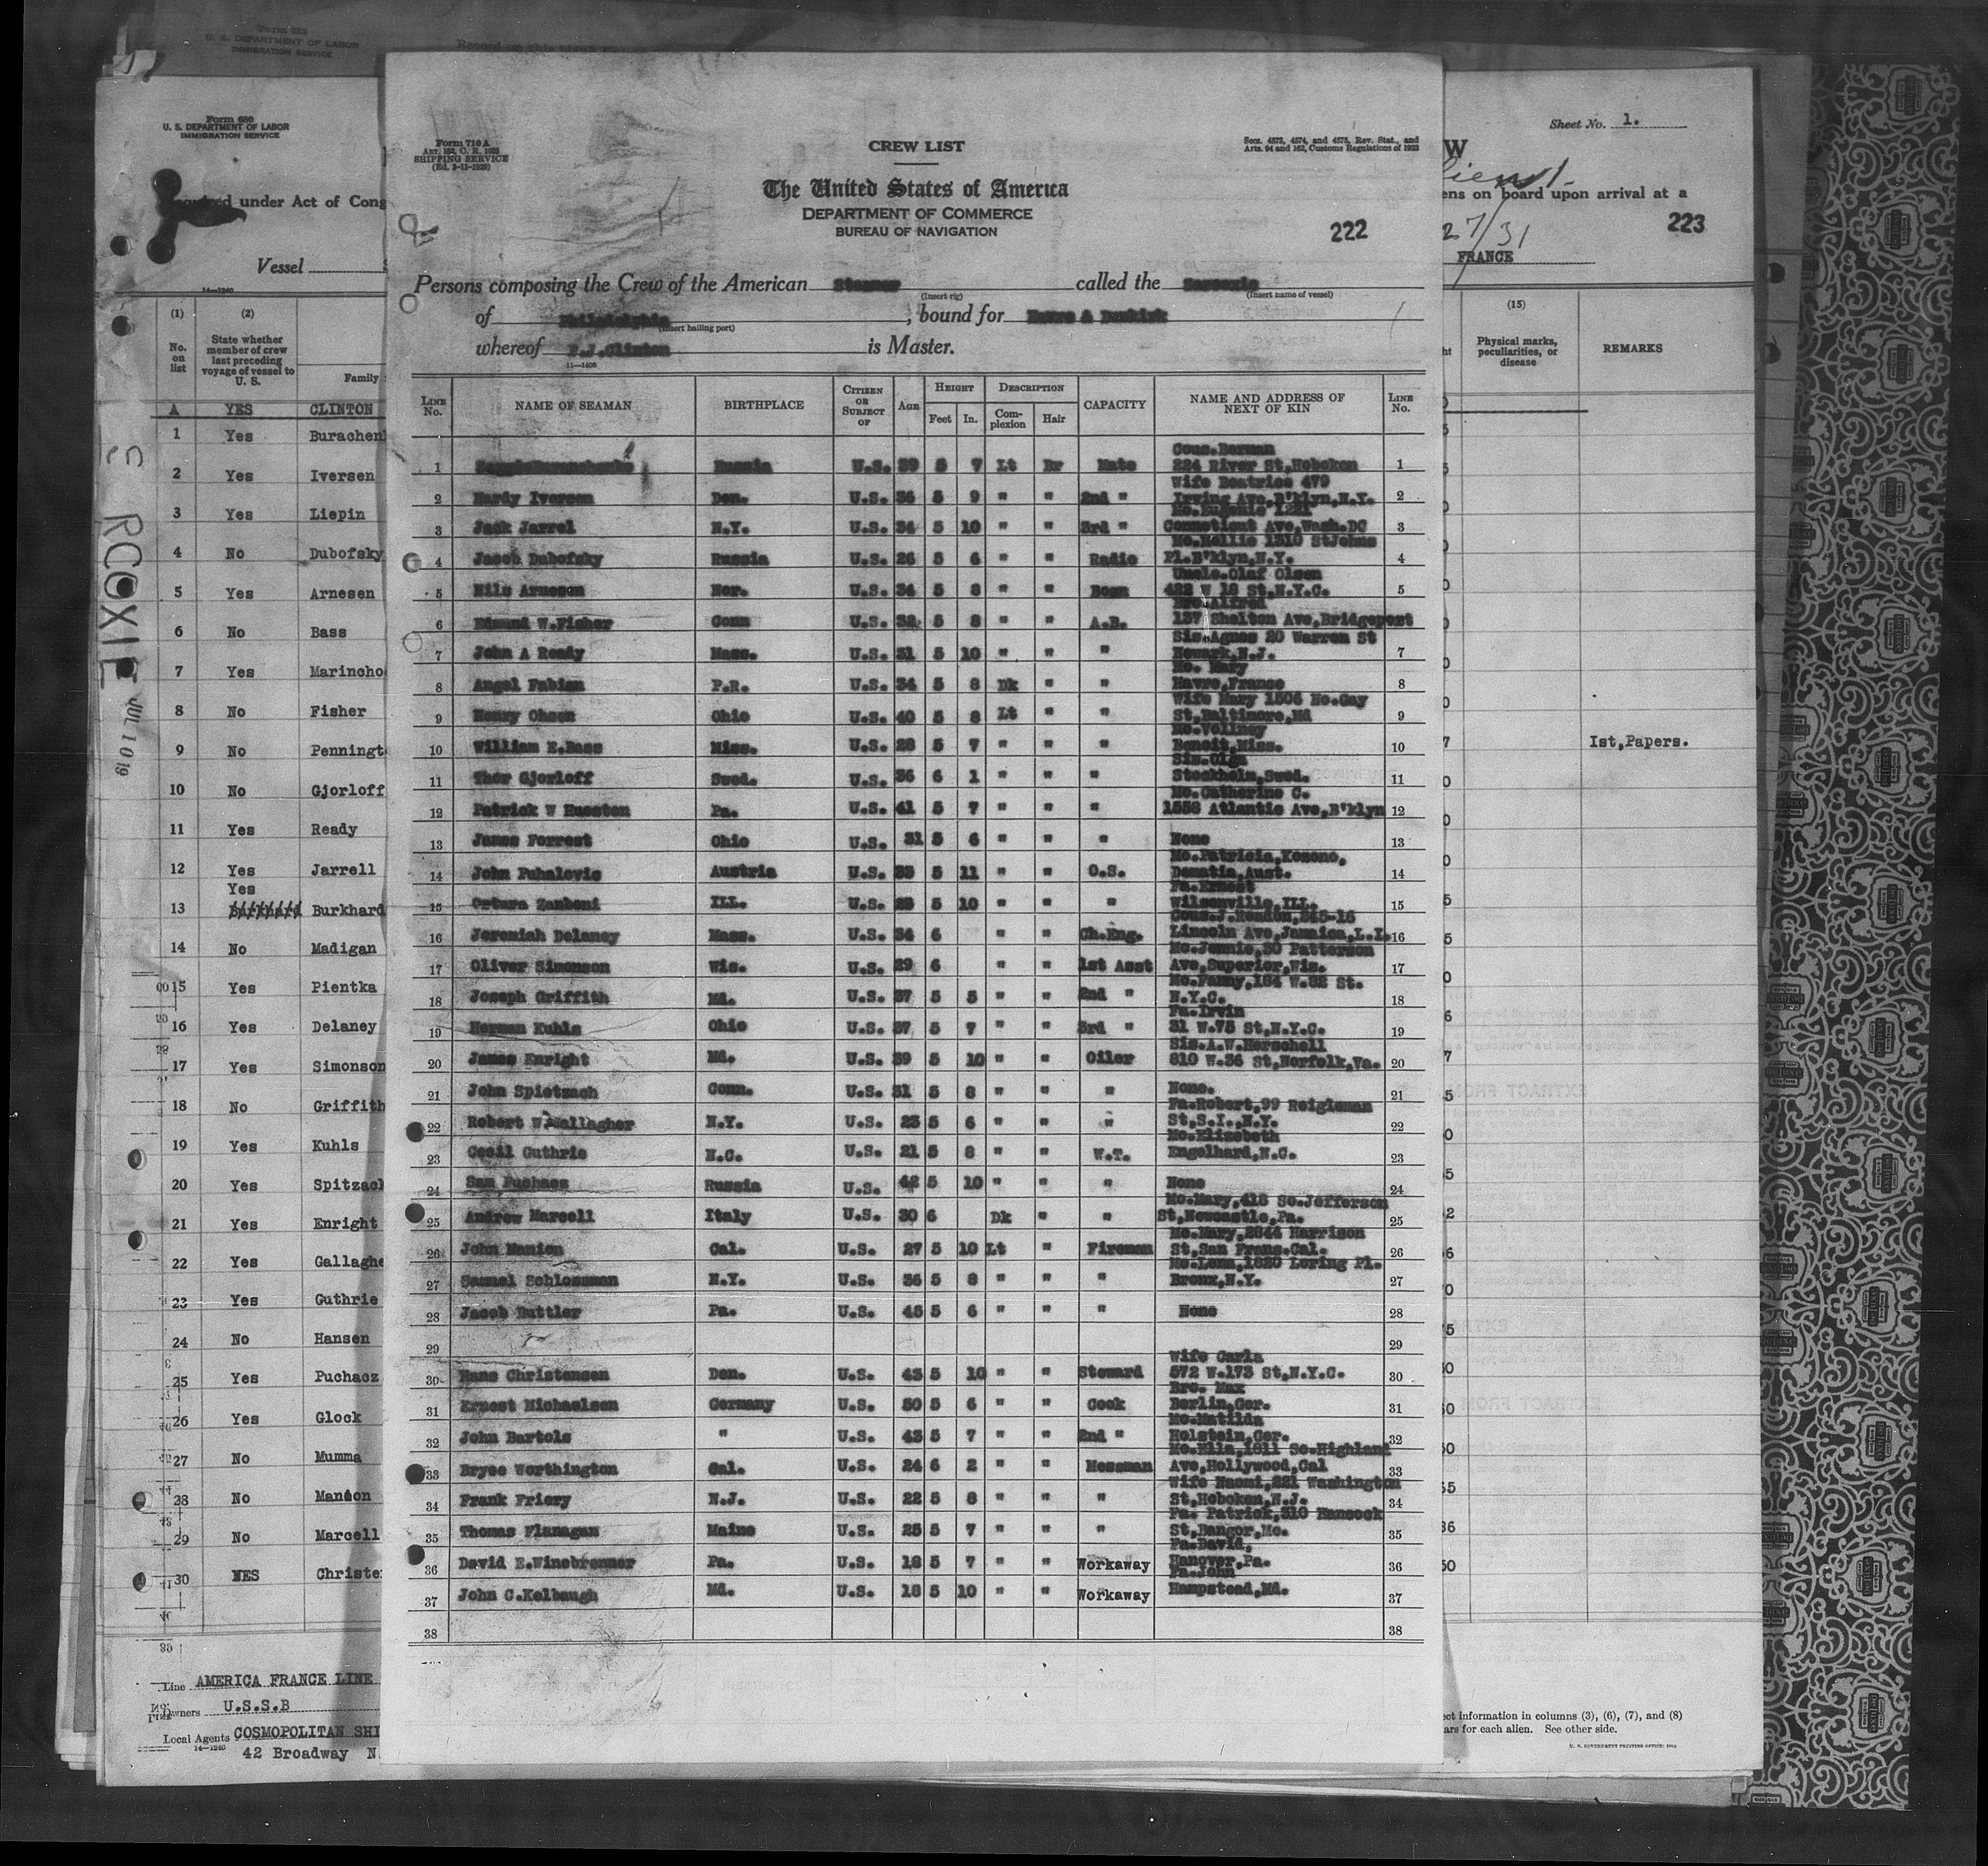 Form 689
U. S. DEPARTMENT OF LABOR
IMMIGRATION SERVICE
under Act of Cong
Vessel
(1) (2)
No. on list
State whether member of crew last preceding voyage of vessel to U. S.
Family
A YES CLINTON
1 Yes Burachen
2 Yes Iversen
3 Yes Liepin
4 No Dubofsky
5 Yes Arnesen
6 No Bass
7 Yes Marincho
8 No Fisher
9 No Penningt
10 No Gjorloff
11 Yes Ready
12 Yes Jarrell
Yes
13 Burkhard
14 No Madigan
15 Yes Pientka
16 Yes Delaney
17 Yes Simonson
18 No Griffith
19 Yes Kuhls
20 Yes Spitzac
21 Yes Enright
22 Yes Gallaghe
23 Yes Guthrie
24 No Hansen
25 Yes Puchacz
26 Yes Glock
27 No Mumma
28 No Manion
29 No Marcell
30 YES Christe
Line AMERICA FRANCE LINE
Owners U.S.S.B
Local Agents COSMOPOLITAN SHI
14—1240
42 Broadway N
RCOXIE
JUL 10 19
Form 710 A
ART. 162, C. R. 1923
SHIPPING SERVICE
CREW LIST
Secs. 4573, 4574, and 4575, Rev. Stat., and
Arts. 94 and 162, Customs Regulations of 1923
The United States of America
DEPARTMENT OF COMMERCE
BUREAU OF NAVIGATION
222
Persons composing the Crew of the American Steamer called the Sarcoxie
(Insert rig) (Insert name of vessel)
of Philadelphia, bound for Havre & Dunkirk
(Insert hailing port)
whereof P.J.Clinton is Master.
LINE No. NAME OF SEAMAN BIRTHPLACE CITIZEN OR SUBJECT OF AGE HEIGHT Feet In. DESCRIPTION Complexion Hair CAPACITY NAME AND ADDRESS OF NEXT OF KIN LINE No.
1 Russia U.S. 39 5 7 Lt Br Mate Cous.Berman 224 River St,Hoboken 1
2 Hardy Iversen Den. U.S. 36 5 9 " " 2nd " Wife Beatrice 479 Irving Ave,B'klyn,N.Y. 2
3 Jack Jarrel N.Y. U.S. 34 5 10 " " 3rd " Mo.Eugenie 1221 Connecticut Ave,Wash.DC 3
4 Jacob Dubofsky Russia U.S. 26 5 6 " " Radio Mo.Nellie 1310 StJohns Pl.B'klyn,N.Y. 4
5 Nils Arneson Nor. U.S. 34 5 8 " " Bosn Uncle.Olaf Olsen 422 W 18 St,N.Y.C. 5
6 Edmund W.Fisher Conn U.S. 32 5 8 " " A.B. Bro.Alfred 137 Shelton Ave,Bridgeport
7 John A Ready Mass. U.S. 31 5 10 " " " Sis.Agnes 20 Warren St Newark,N.J. 7
8 Angel Fabian P.R. U.S. 34 5 8 Dk " " Mo. Mary Havre,France 8
9 Henry Ohsen Ohio U.S. 40 5 8 Lt " " Wife Mary 1506 No.Gay St,Baltimore,Md 9
10 William E.Bass Miss. U.S. 28 5 7 " " " Benoit,Miss. 10
11 Thor Gjorloff Swed. U.S. 36 6 1 " " " Sis.Olga Stockholm,Swed. 11
12 Patrick W Hueston Pa. U.S. 41 5 7 " " " Mo.Catherine C. 1558 Atlantic Ave,B'klyn 12
13 James Forrest Ohio U.S. 31 5 6 " " " None 13
14 John Puhalovic Austria U.S. 35 5 11 " " O.S. Mo.Patricia,Komono, Dematia,Aust. 14
15 Orturo Zanboni ILL. U.S. 23 5 10 " " " Fa.Ernest Wilsonville,ILL. 15
16 Jeremiah Delaney Mass. U.S. 34 6 " " Ch.Eng. Cous.J.Readon,245-16 Lincoln Ave,Jamaica,L.I. 16
17 Oliver Simonson Wis. U.S. 29 6 " " 1st Asst Mo.Jennie,30 Patterson Ave,Superior,Wis. 17
18 Joseph Griffith Md. U.S. 37 5 5 " " 2nd " Mo.Fanny,164 W.82 St. N.Y.C. 18
19 Herman Kuhls Ohio U.S. 37 5 7 " " 3rd " Fa.Irvin 31 W.75 St,N.Y.C. 19
20 James Enright Md. U.S. 39 5 10 " " Oiler Sis.A.W.Herschell 810 W.36 St,Norfolk,Va. 20
21 John Spietzach Conn. U.S. 31 5 8 " " " None. 21
22 Robert W.Gallagher N.Y. U.S. 23 5 6 " " " Fa.Robert,99 Reigleman St,S.I.,N.Y. 22
23 Cecil Guthrie N.C. U.S. 21 5 8 " " W.T. Mo.Elizabeth Engelhard,N.C. 23
24 Sam Puchacz Russia U.S. 42 5 10 " " " None 24
25 Andrew Marcell Italy U.S. 30 6 Dk " " Mo.Mary,418 So.Jefferson St,Newcastle,Pa. 25
26 John Manion Cal. U.S. 27 5 10 Lt " Fireman Mo.Mary,2844 Harrison St,San Frans.Cal. 26
27 Samuel Schlossman N.Y. U.S. 36 5 8 " " " Mo.Lena,1820 Loring Pl. Bronx,N.Y. 27
28 Jacob Buttler Pa. U.S. 45 5 6 " " " None 28
29 29
30 Hans Christensen Den. U.S. 43 5 10 " " Steward Wife Carla 572 W.173 St,N.Y.C. 30
31 Ernest Michaelsen Germany U.S. 50 5 6 " " Cook Bro. Max Berlin,Ger. 31
32 John Bartols " U.S. 43 5 7 " " 2nd " Mo.Matilda Holstein,Ger. 32
33 Bryce Worthington Cal. U.S. 24 6 2 " " Messman Mo.Ella,1811 So.Highland Ave,Hollywood,Cal 33
34 Frank Friery N.J. U.S. 22 5 8 " " " Wife Naomi,221 Washington St,Hoboken,N.J. 34
35 Thomas Flanagan Maine U.S. 25 5 7 " " " Fa. Patrick,310 Hancock St,Bangor,Me. 35
36 David E.Winebrenner Pa. U.S. 18 5 7 " " Workaway Fa.David, Hanover,Pa. 36
37 John C.Kelbaugh Md. U.S. 18 5 10 " " Workaway Fa.John Hampstead,Md. 37
38 38
Sheet No. 1.
W
ens on board upon arrival at a
27/31
223
FRANCE
(15)
Physical marks, peculiarities, or disease
REMARKS
Ist,Papers.
ect information in columns (3), (6), (7), and (8)
ars for each alien. See other side.